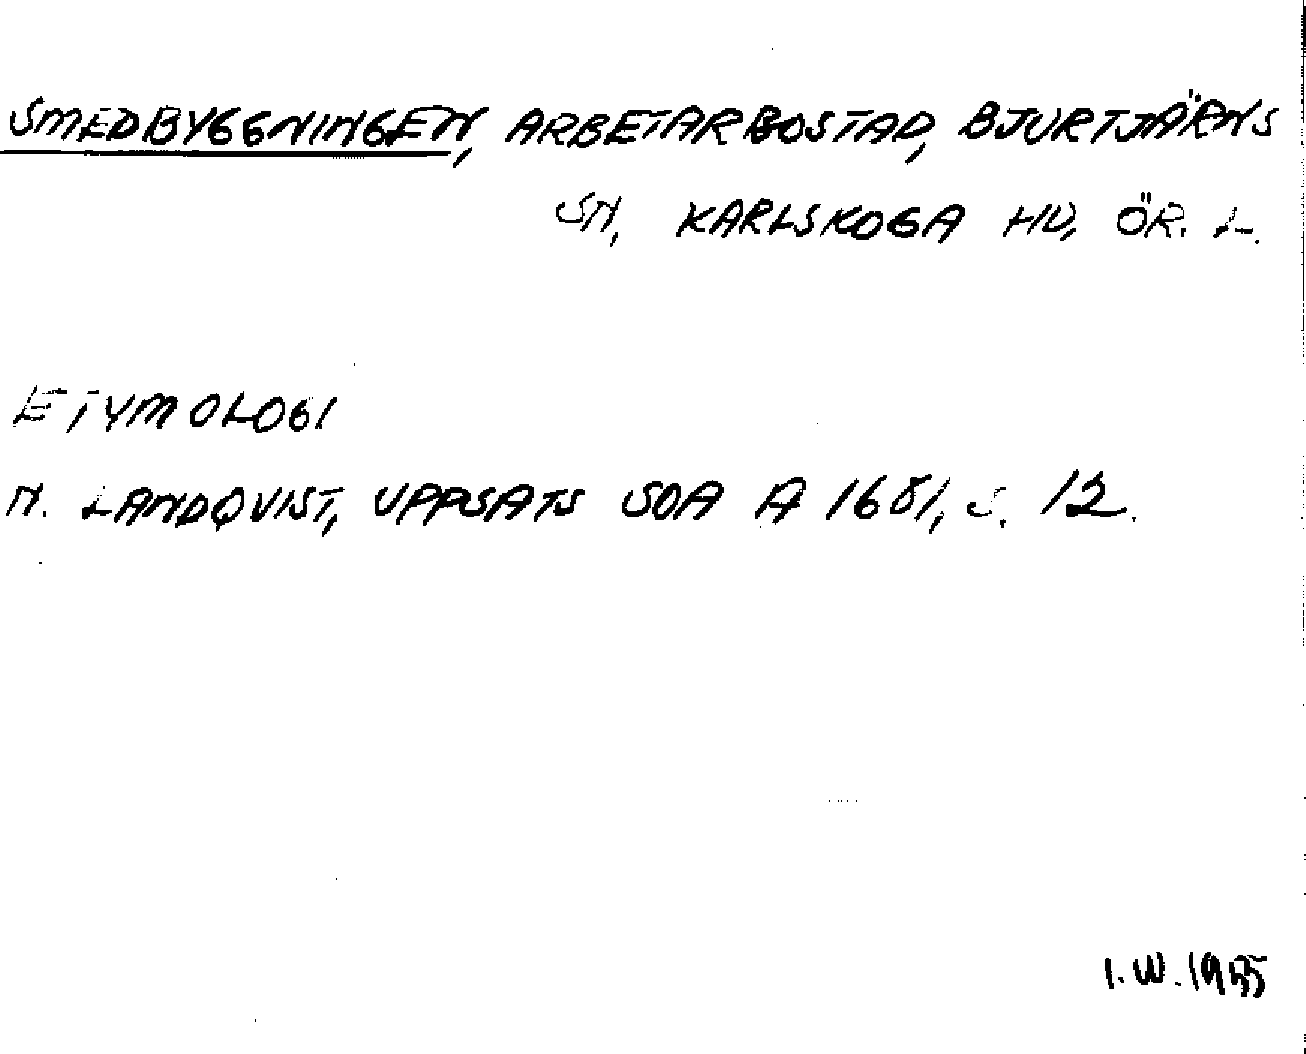 SMEDBYGGNINGEN, ARBETARBOSTAD, BJURTJÄRNS
SN, KARLSKOGA HD, ÖR. L.
ETYMOLOGI
N. LANDQVIST, UPPSATS SOA A 1681, S. 12.
I.W. 1955